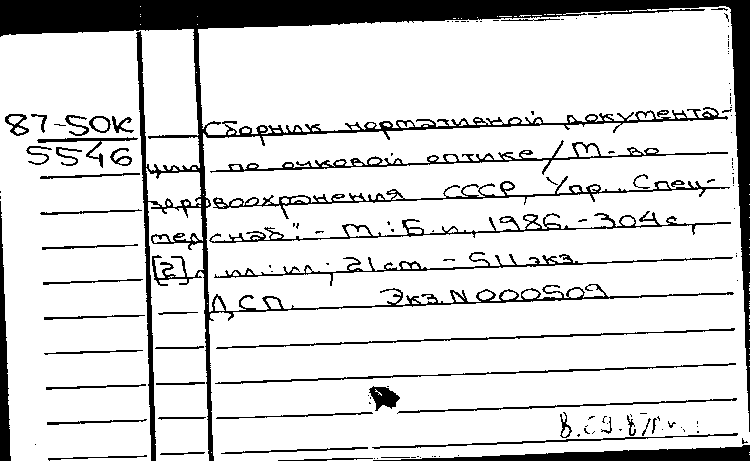 87-50К
5546
Сборник нормативной документа-
ции по очковой оптике / М-во
здравоохранения СССР, Упр. "Спец-
медснаб". - М.: Б.и., 1986. - 304 с.,
[2] л. ил.: ил; 21 см. - 511 экз.
ДСП. Экз. N 000509